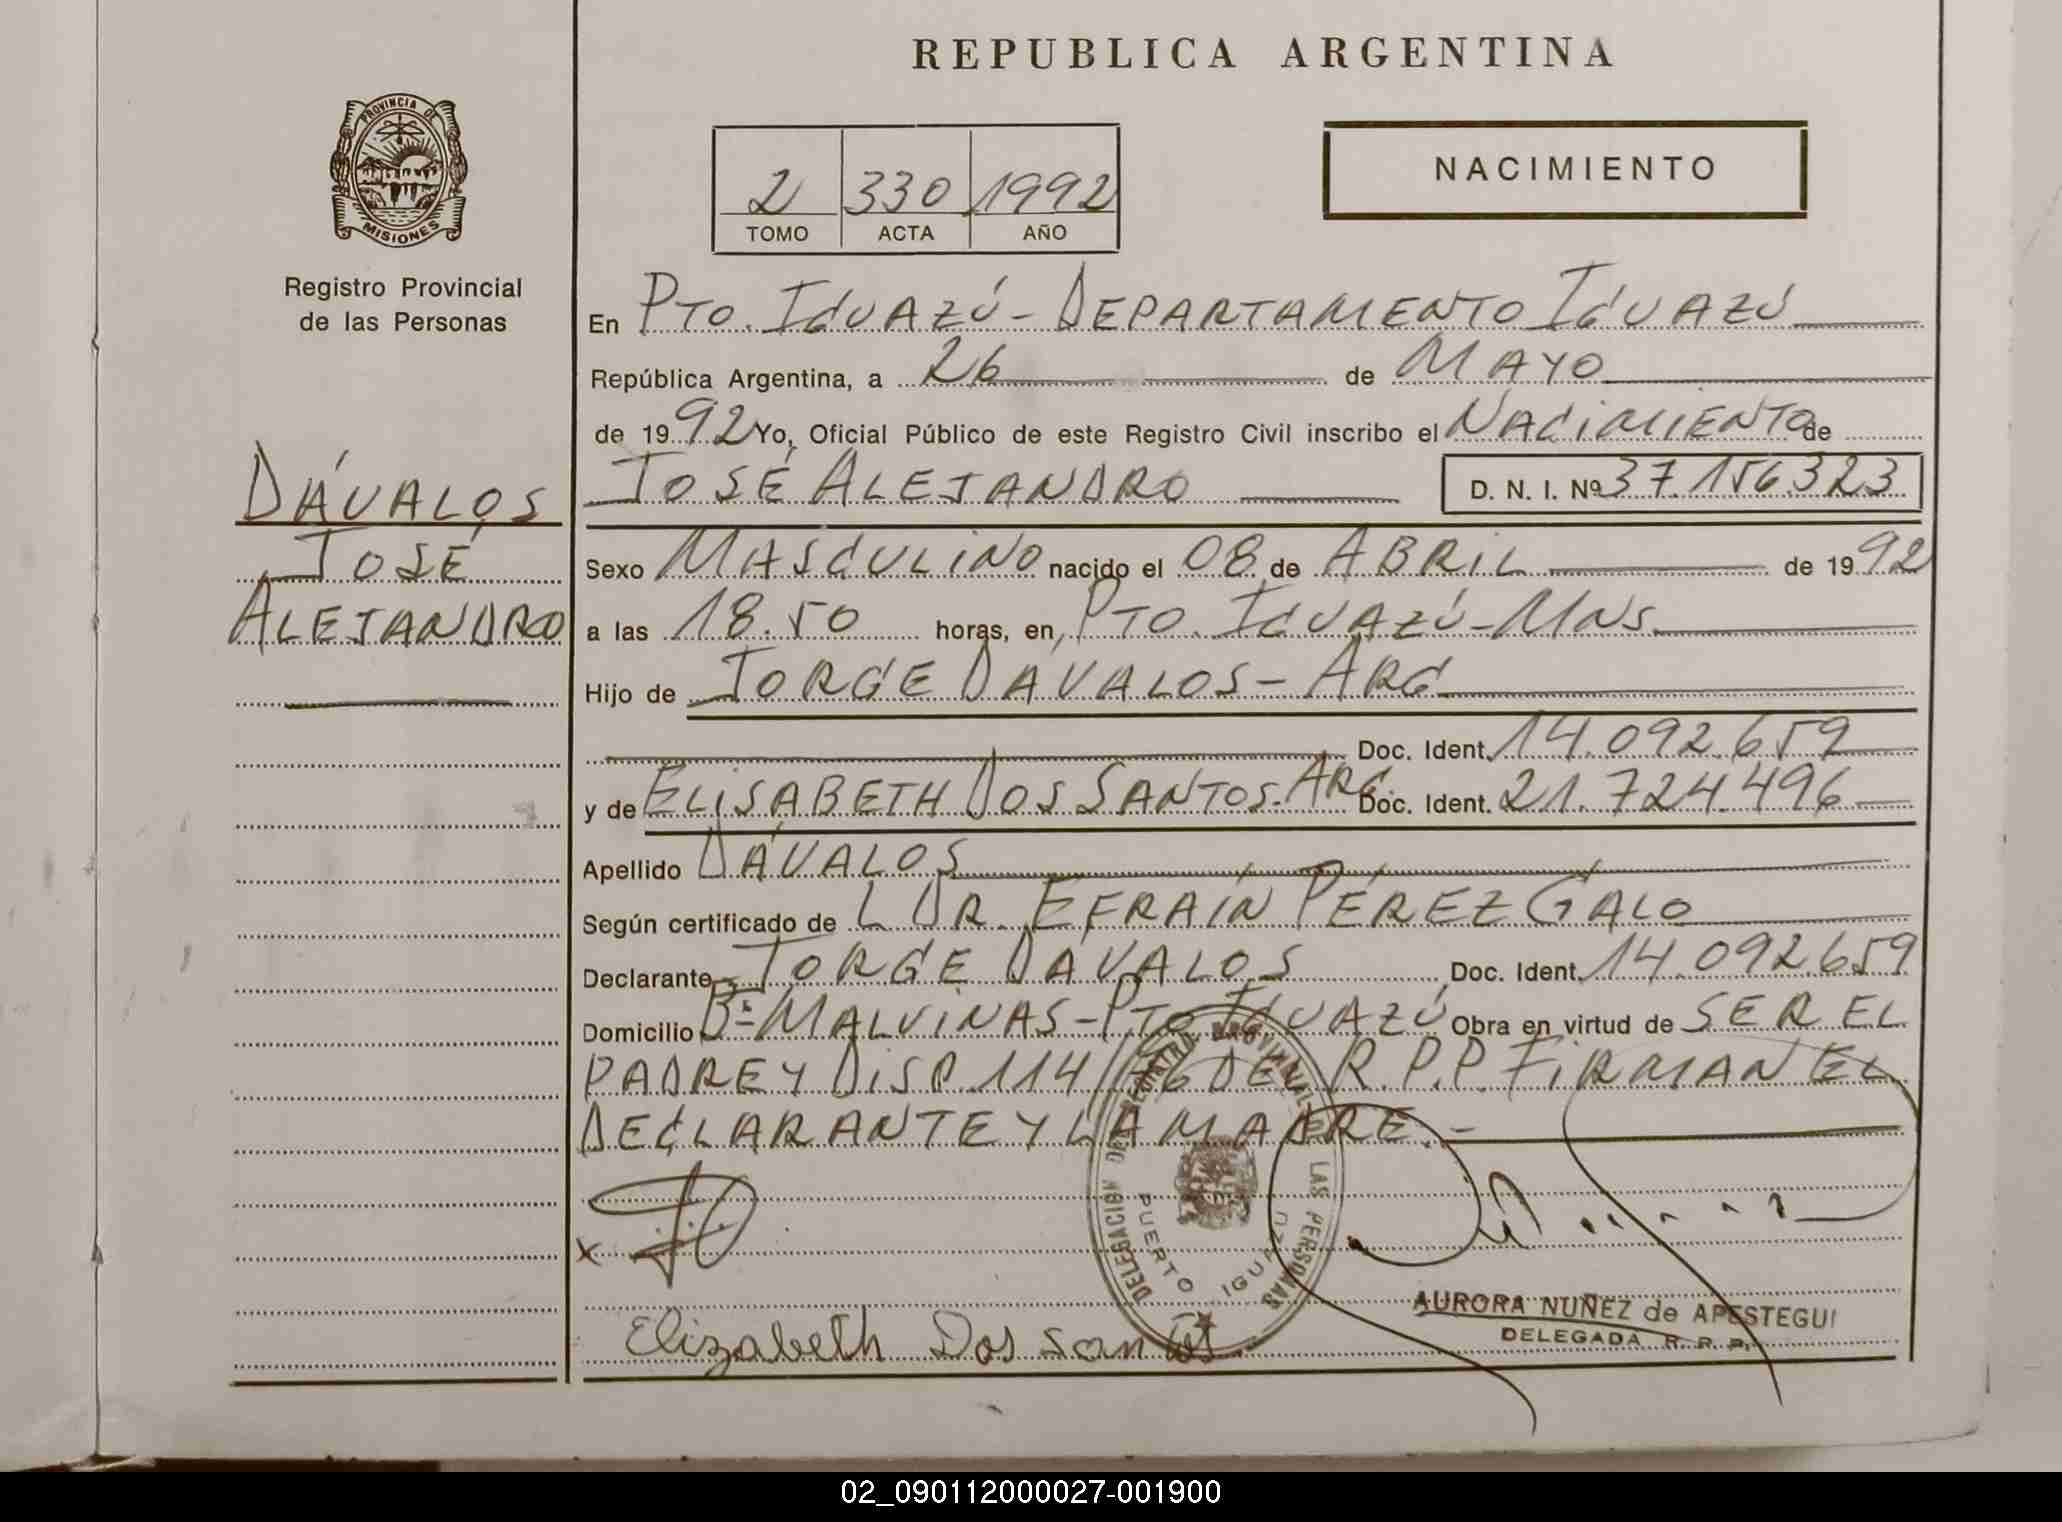 REPUBLICA ARGENTINA
PROVINCIA DE
MISIONES
Registro Provincial
de las Personas
2 330 1992
TOMO ACTA AÑO
NACIMIENTO
DÁVALOS
JOSÉ
ALEJANDRO
En PTO. IGUAZÚ - DEPARTAMENTO IGUAZÚ
República Argentina, a 26 de MAYO
de 1992 Yo, Oficial Público de este Registro Civil inscribo el NACIMIENTO de
JOSÉ ALEJANDRO D. N. I. Nº 37.156.323
Sexo MASCULINO nacido el 08 de ABRIL de 1992
a las 18.50 horas, en PTO. IGUAZÚ - MNS.
Hijo de JORGE DÁVALOS - ARG
Doc. Ident. 14.092.659
y de ELISABETH DOS SANTOS. ARG. Doc. Ident. 21.724.496
Apellido DÁVALOS
Según certificado de L DR. EFRAÍN PÉREZ GALO
Declarante JORGE DÁVALOS Doc. Ident. 14.092.659
Domicilio Bº MALVINAS - PTO IGUAZÚ Obra en virtud de SER EL
PADRE Y DISP. 114/ DEL R.P.P. FIRMAN EL
DECLARANTE Y LA MADRE. -
DELEGACION DEL REGISTRO PROVINCIAL DE LAS PERSONAS
PUERTO IGUAZU
X
Elizabeth Dos santos
AURORA NUÑEZ de APESTEGUI
DELEGADA R. P. P.
02_090112000027-001900